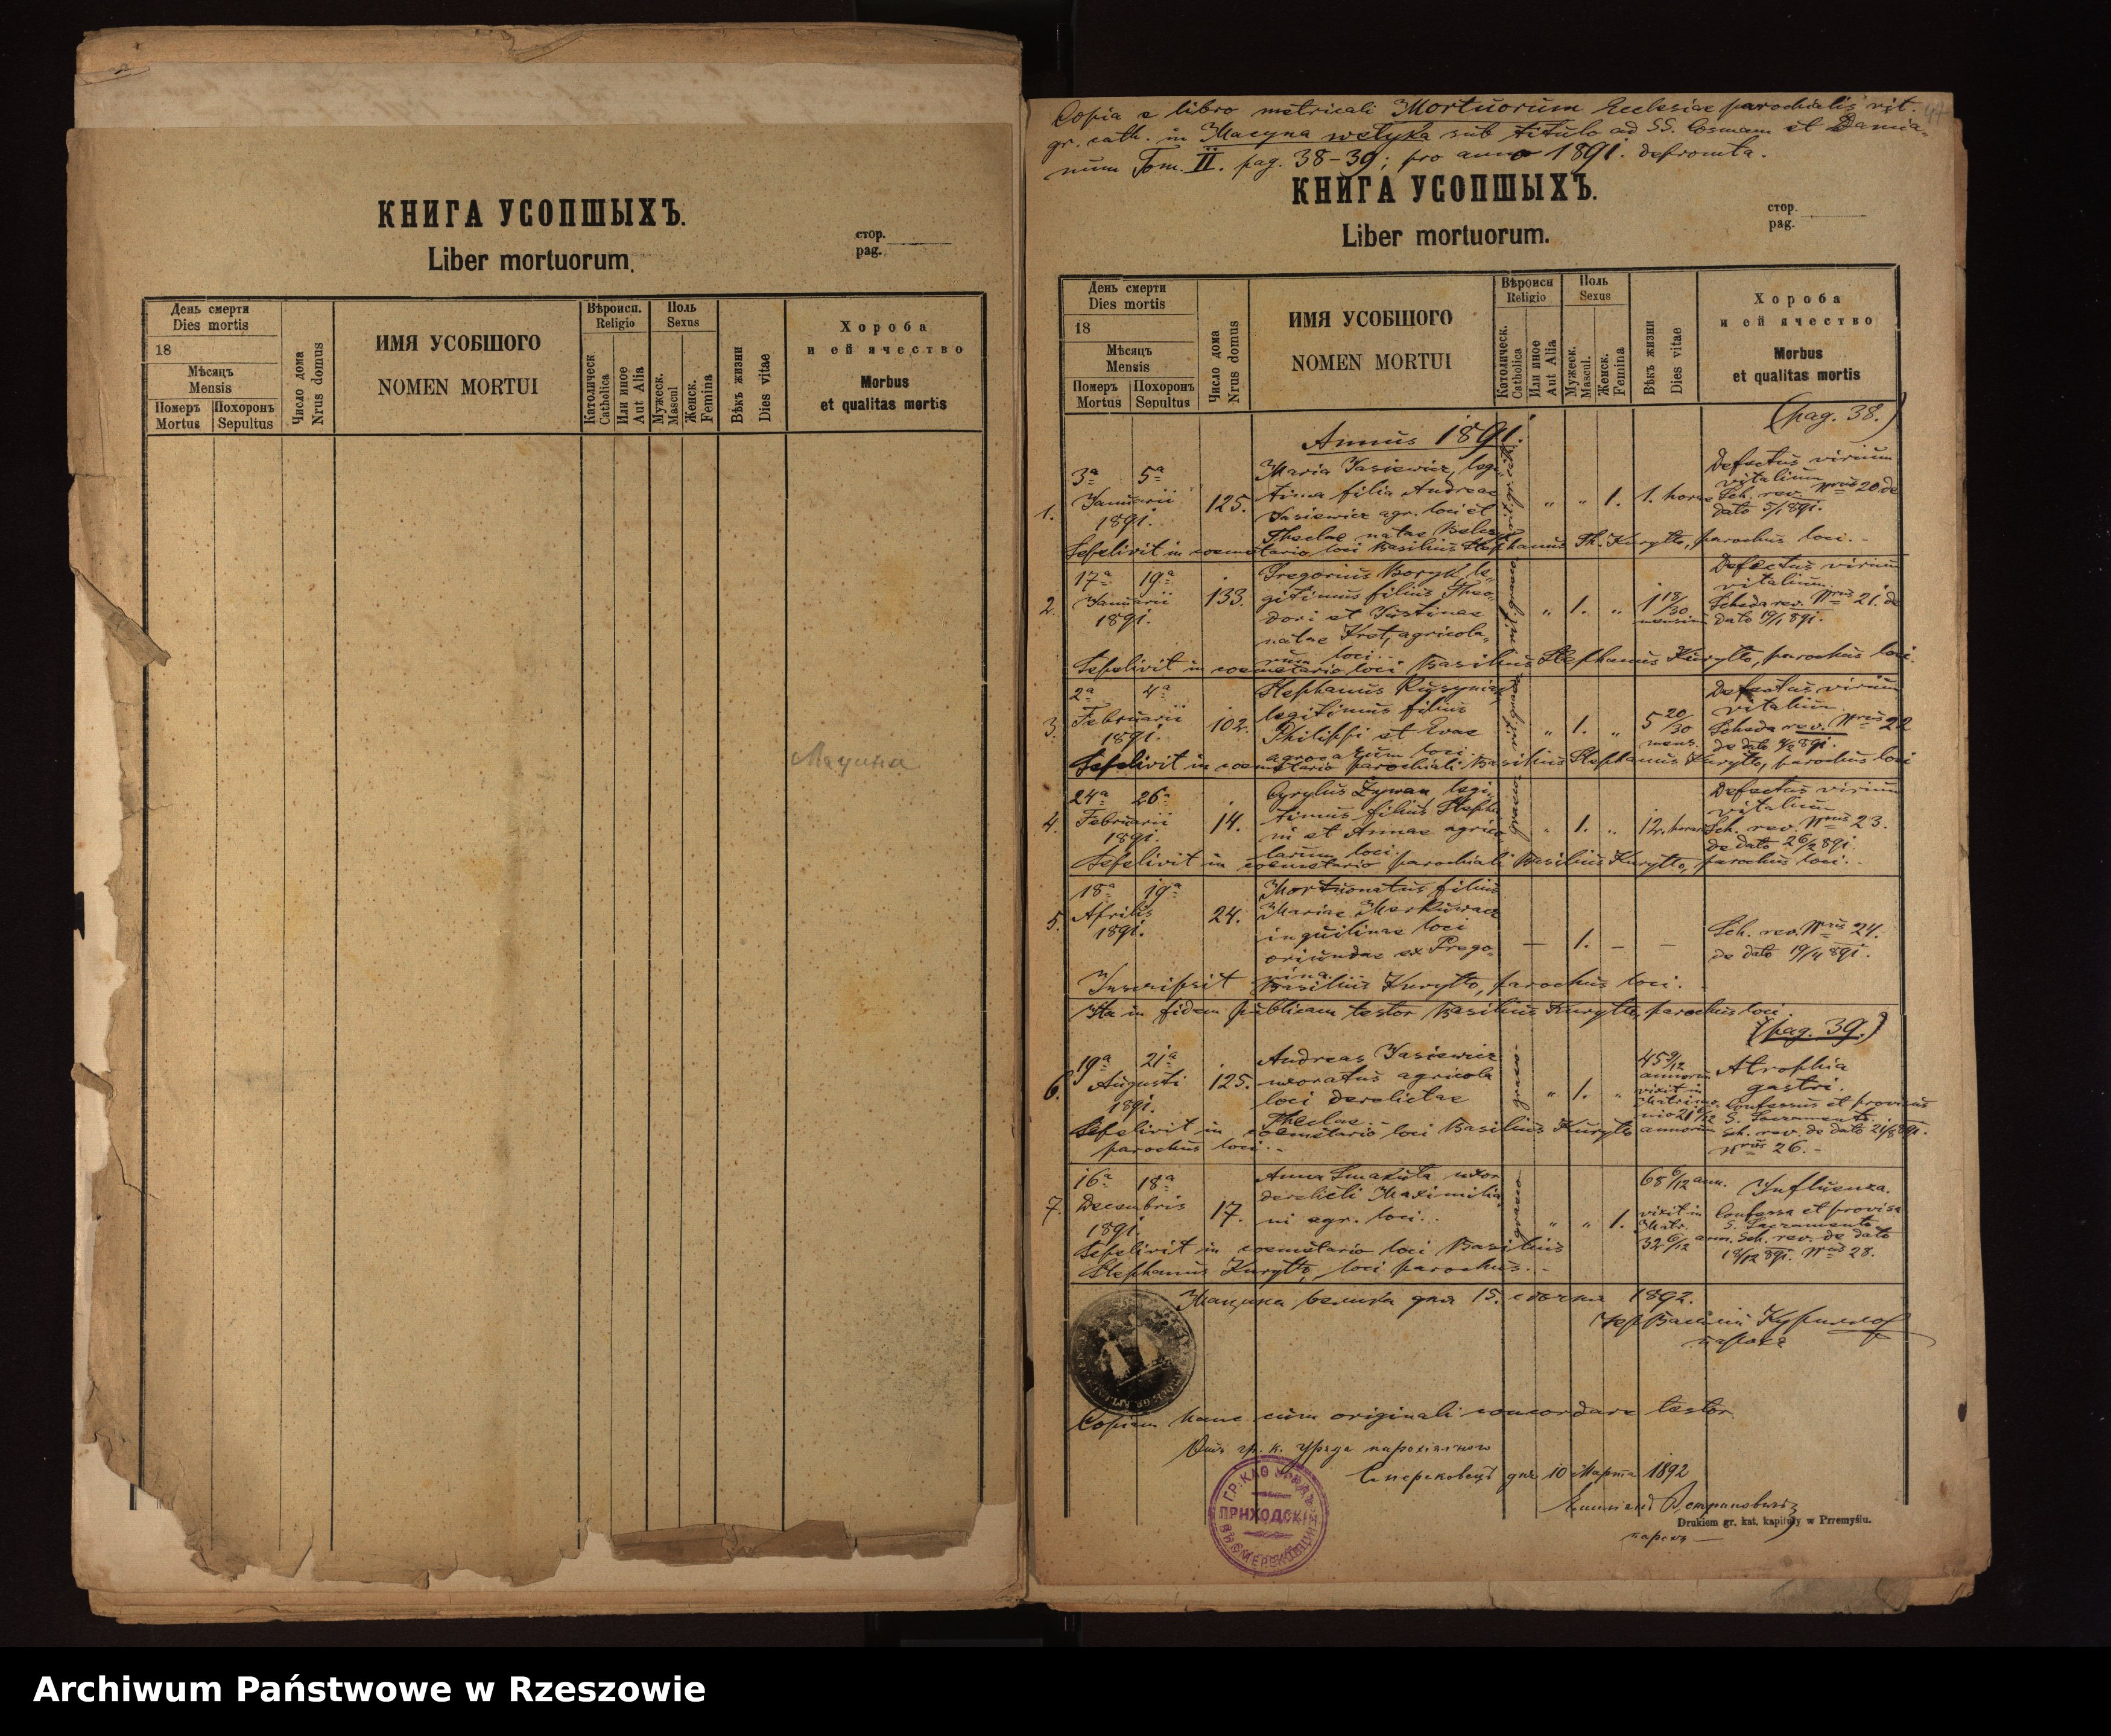 КНИГА УСОПШЫХЪ.
Liber mortuorum.
стор.
pag.
День смерти
Dies mortis
18
Мѣсяцъ
Mensis
Померъ
Mortus
Похоронъ
Sepultus
Число дома
Nrus domus
ИМЯ УСОБШОГО
NOMEN MORTUI
Вѣроисп.
Religio
Католическ
Catholica
Или иное
Aut Alia
Поль
Sexus
Мужеск.
Mascul
Женск.
Femina
Вѣкъ жизни
Dies vitae
Хороба
и ей ячество
Morbus
et qualitas mortis
Мацина
Copia e libro metricali Mortuorum Ecclesiae parochialis rit.
gr. cath. in Macyna welyka sub titulo ad SS. Cosmam et Damia-
num Tom. II. pag. 38-39; pro anno 1891. depromta.
КНИГА УСОПШЫХЪ.
Liber mortuorum.
стор.
pag.
День смерти
Dies mortis
18
Мѣсяць
Mensis
Померъ
Mortus
Похоронъ
Sepultus
Число дома
Nrus domus
ИМЯ УСОБШОГО
NOMEN MORTUI
Вѣроисп
Religio
Католическ.
Catholica
Или иное
Aut Alia
Поль
Sexus
Мужеск.
Mascul.
Женск.
Femina
Вѣкъ жизни
Dies vitae
Хороба
и ей ячество
Morbus
et qualitas mortis
(pag. 38.)
Annus 1891.
1. 3a 5a Januarii 1891. 125.
Maria Jasiewicz, legi-
tima filia Andreae
Jasiewicz agr. loci et
Theclae natae
" " 1. 1. horae
Defectus virium
vitalium
Sch. rev. Nrus 20 de
dato 5/1 891.
Sepelivit in coemetario loci Basilius Stephanus Kuryłło, parochus loci.-
2. 17a 19a Januarii 1891. 133.
Gregorius Boryk, le-
gitimus filius Theo-
dori et Justinae
natae Kret, agricola-
rum loci.
" 1. " 1 18/30 mensium
Defectus virium
vitalium
Scheda rev. Nrus 21. de
dato 19/1 891.
Sepelivit in coemetario loci Basilius Stephanus Kuryłło, parochus loci.
3. 2a 4a Februarii 1891. 102.
Stephanus Rusyniak
legitimus filius
Philippi et Evae
loci.
" 1. " 5 20/30 mens.
Defectus virium
vitalium
Scheda rev. Nrus 22
de dato 4/2 891.
Sepelivit in coemetario parochiali Basilius Stephanus Kuryłło, parochus loci
4. 24a 26a Februarii 1891. 14.
Cyrylus Dzwan, legi-
timus filius Stepha-
ni et Annae agrico-
larum loci.
graeco " 1. " 12. horar.
Defectus virium
vitalium
Sch. rev. Nrus 23.
de dato 26/2 891.
Sepelivit in coemetario parochiali Basilius Kuryłło, parochus loci.-
5. 18a 19a Aprilis 1891. 24.
Mortuonatus filius
Mariae Merkuwacz
inquilinae loci
oriundae ex Prego-
nina.
— 1. — —
Sch. rev. Nrus 24.
de dato 19/4 891.
Inscripsit Basilius Kuryłło, parochus loci.
Ita in fidem publicam testor Basilius Kuryłło, parochus loci
(pag. 39.)
6. 19a 21a Augusti 1891. 125.
Andreas Jasiewicz
uxoratus agricola
loci derelictae
Theclae.
graeco " 1. "
45 9/12 annorum
vixit in
Matrimo-
nio 21 6/12
annorum
Atrophia
gastri.
Confessus et provisus
S. Sacramento
Sch. rev. de dato 21/8 891.
Nrus 26.-
Sepelivit in coemetario loci Basilius Kuryłło
parochus loci.-
7. 16a 18a Decembris 1891. 17.
Anna Smakuta uxor
derelicti Maximilia-
ni agr. loci.
graeco " " 1.
68 6/12 ann.
vixit in
Matr.
32 6/12 ann.
Influenza.
Confessa et provisa
S. Sacramento
Sch. rev. de dato
18/12 891. Nrus 28.
Sepelivit in coemetario loci Basilius
Stephanus Kuryłło, loci parochus.-
Мацина велика дня 15. 1892.
Василій Курилло
парохъ
Copiam hanc cum originali concordare testor.
Отъ гр. к. уряда парохіяльного
Смерековець дня 10 Марта 1892
парохъ
ГР. КАѲ УРЯДЪ
ПРИХОДСКІЙ
ВЪ СМЕРЕКОВЦИ
Drukiem gr. kat. kapituły w Przemyślu.
Archiwum Państwowe w Rzeszowie